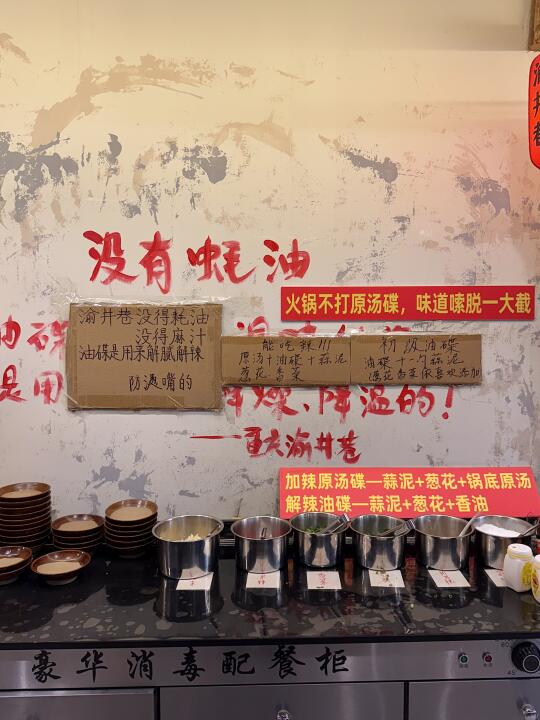 渝井巷
没有蚝油
火锅不打原汤碟，味道嗦脱一大截
渝井巷没得耗油
没得麻汁
油碟是用来解腻解辣
防烫嘴的
能吃辣!!!
原汤+油碟+蒜泥
葱花 香菜
初级油碟
油碟+一勺蒜泥
葱花香菜依喜欢添加
油碟
是用
燥、降温的！
——重庆渝井巷
加辣原汤碟—蒜泥+葱花+锅底原汤
解辣油碟—蒜泥+葱花+香油
豪华消毒配餐柜